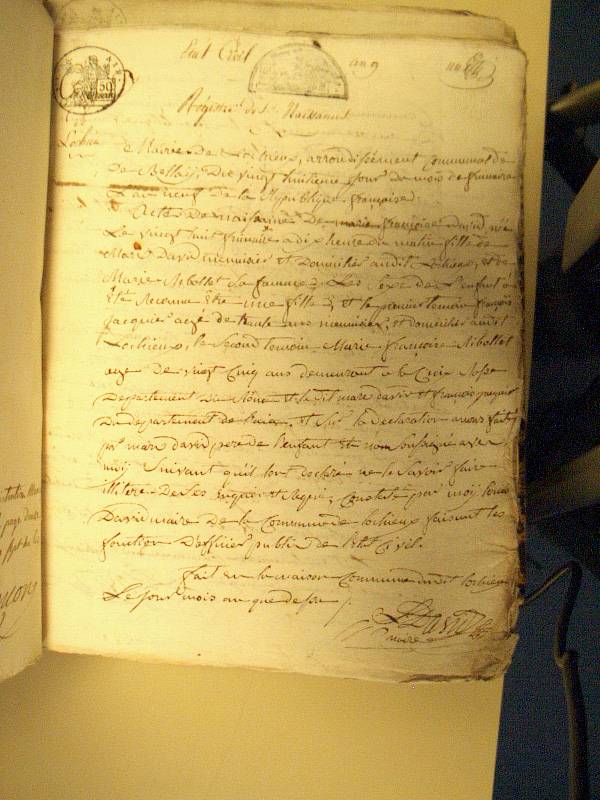 Etat Civil an 9
Registre des Naissances
Lochieu
Mairie De Lochieux, arrondissement Communal de
De Belley, Du vingt huitieme jour du mois de frimaire
an neuf de la Republique francaise.
Acte De naissance De marie francoise David née
Le vingt huit frimaire a dix heure du matin fille de
Marc David meunier et Domicilier audit Lochieux, et de
Marie Ribollet sa famme; Les sexe de L'enfant a
Eté Reconnu Etre une fille; et le premier temoin francois
Jacquier agé de trente ans meunier, et domicilier audit
Lochieux, le Second temoin Marie francoise Ribollet
agé De vingt Cinq ans demeurant a la Croix
Departement Du Rhone et ledit marc david et francois
Du departement de L'ain, et Sur la declaration a nous fait
par marc david pere de L'enfant Et non Soussigné avec
moij Suivant qu'il ont déclaré ne le Savoir faire
illitere De Les Enquis et Requi; Constaté par moij
David maire De la Commune de lochieux faisant les
fonction D'officier public De l'Etat Civil.
fait en la maison Commune dudit lochieux
Le jour mois an que dessu
David
maire